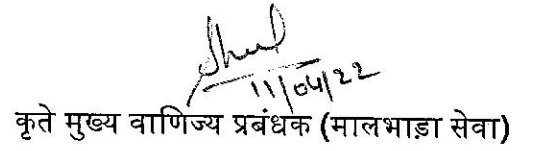 11/04/22
कृते मुख्य वाणिज्य प्रबंधक (मालभाड़ा सेवा)